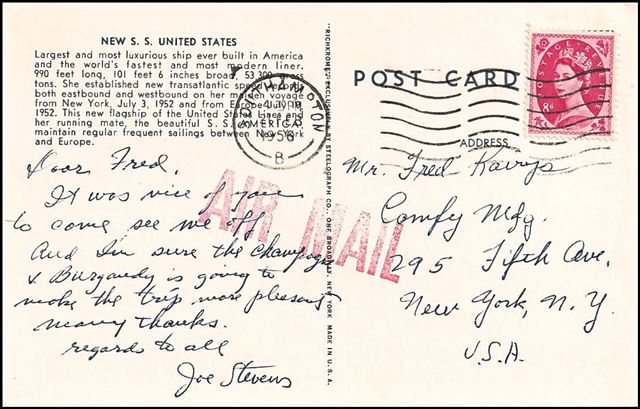 NEW S. S. UNITED STATES
Largest and most luxurious ship ever built in America
and the world's fastest and most modern liner.
990 feet long, 101 feet 6 inches broad, 53,300 gross
tons. She established new transatlantic speed records
both eastbound and westbound on her maiden voyage
from New York, July 3, 1952 and from Europe July 10,
1952. This new flagship of the United States Lines and
her running mate, the beautiful S. S. AMERICA
maintain regular frequent sailings between New York
and Europe.
Dear Fred,
It was nice of you
to come see me off.
And I'm sure the champagne
& Burgandy is going to
make the trip more pleasant
many thanks.
regards to all
Joe Stevens
"RICHKROME" EXCLUSIVELY BY STEELOGRAPH CO. ONE BROADWAY, NEW YORK MADE IN U.S.A.
POST CARD
SOUTHAMPTON
1956
B
POSTAGE REVENUE
8D
ADDRESS
AIR MAIL
Mr. Fred
Comfy Mfg.
295 Fifth Ave.
New York, N.Y.
U.S.A.